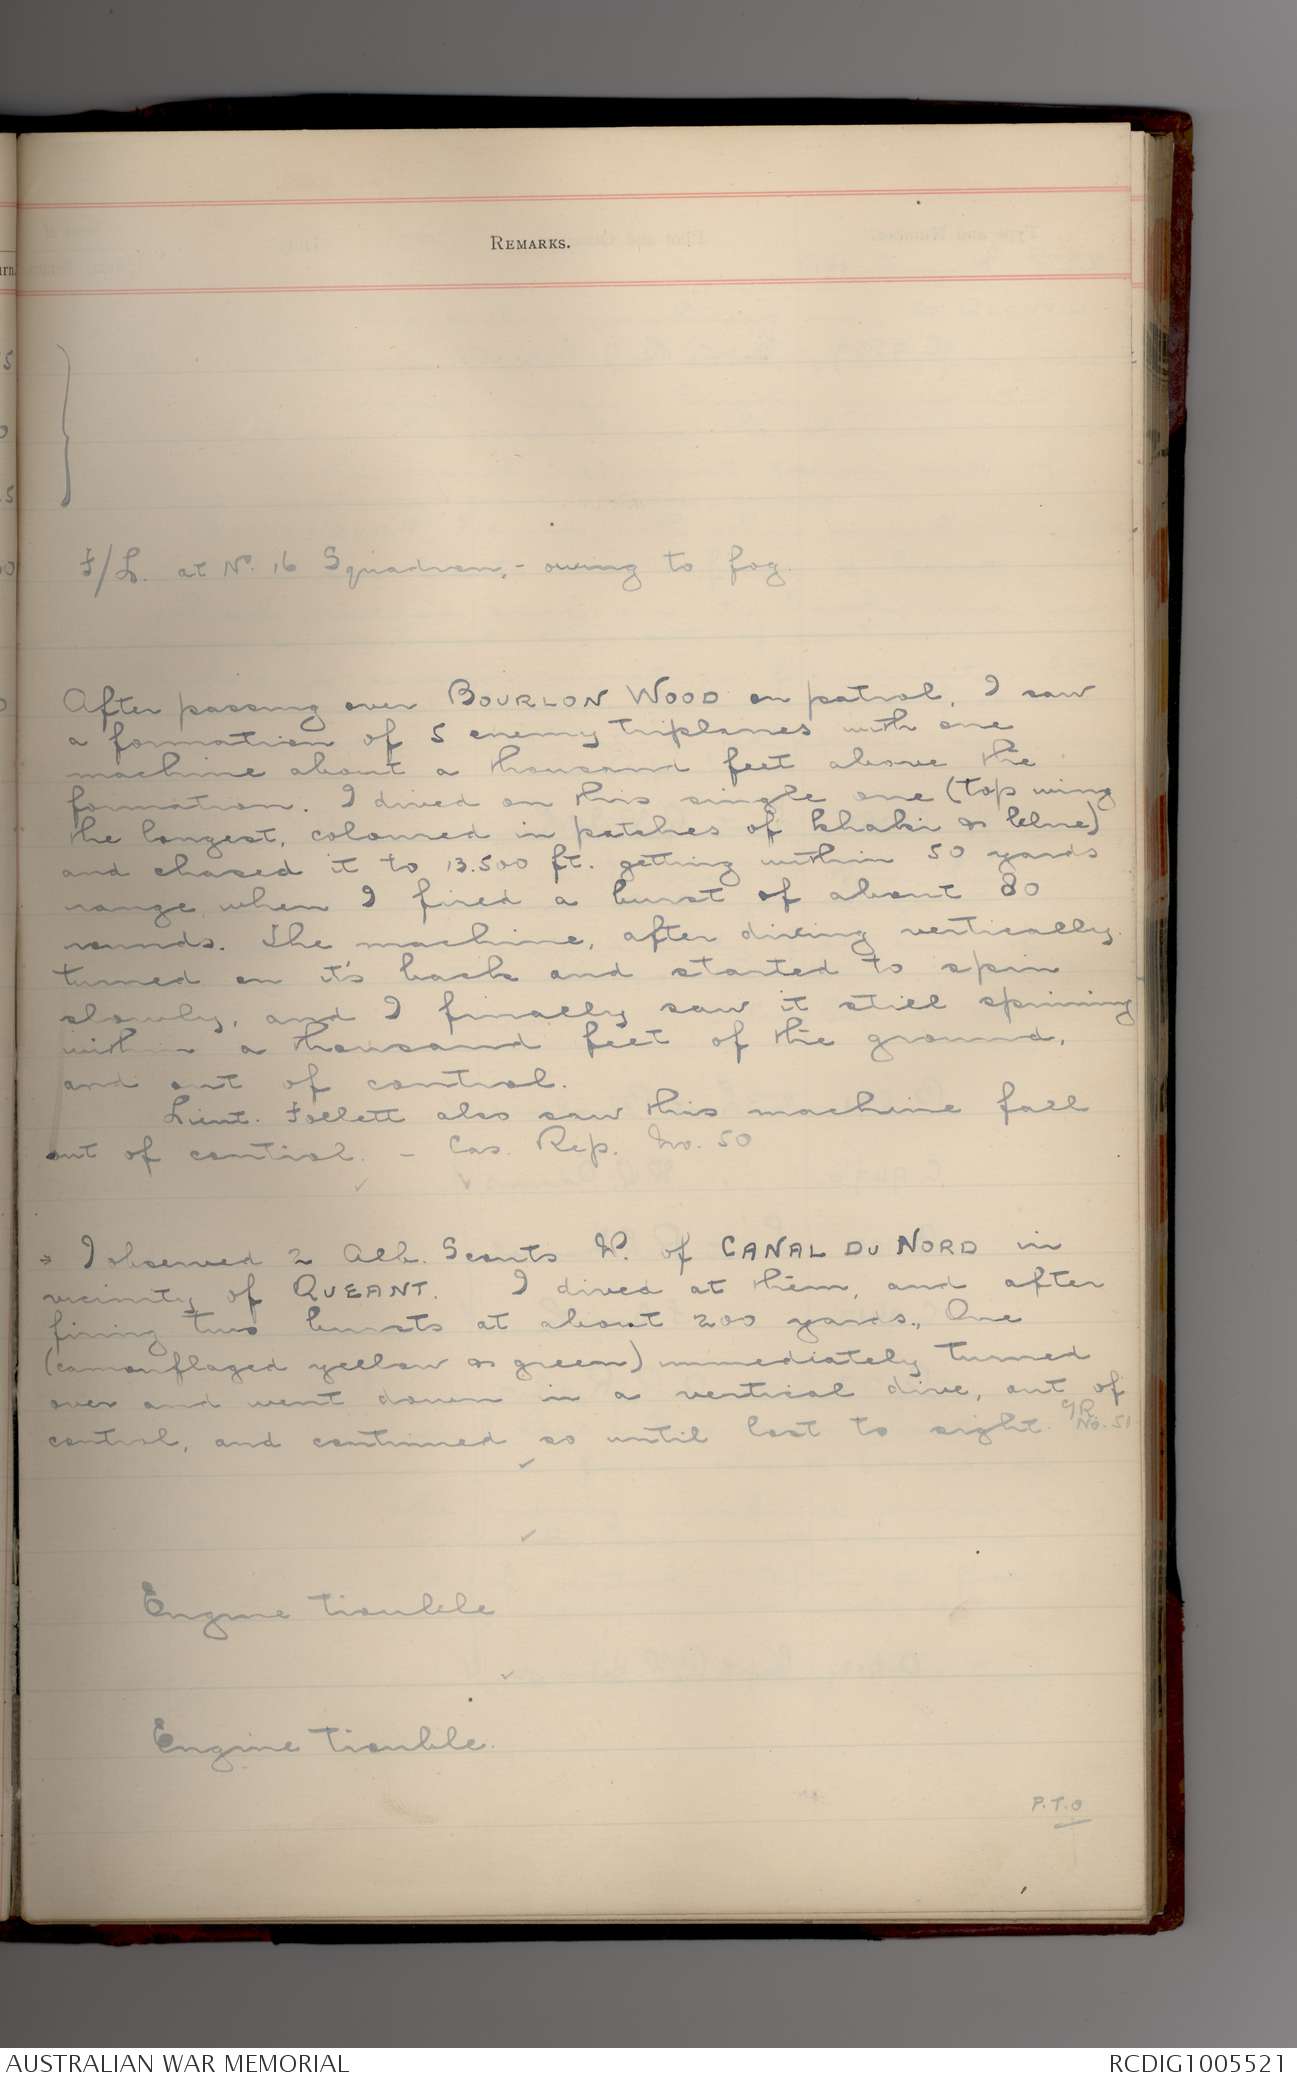 REMARKS.
F/L. at No. 16 Squadron, - owing to fog.
After passing over BOURLON WOOD on patrol, I saw
a formation of 5 enemy triplanes with one
machine about a thousand feet above the
formation. I dived on this single one (top wing
the longest, coloured in patches of khaki & blue)
and chased it to 13.500 ft. getting within 50 yards
range, when I fired a burst of about 80
rounds. The machine, after diving vertically,
turned on it's back and started to spin
slowly, and I finally saw it still spinning
within a thousand feet of the ground,
and out of control.
Lieut. Follett also saw this machine fall
out of control. - Cas. Rep. No. 50
I observed 2 Alb. Scouts W. of CANAL DU NORD in
vicinity of QUEANT. I dived at them, and after
firing two bursts at about 200 yards., One
(camouflaged yellow & green) immediately turned
over and went down in a vertical dive, out of
control, and continued so until lost to sight. C/R No. 51
Engine trouble
Engine trouble.
P.T.O
AUSTRALIAN WAR MEMORIAL
RCDIG1005521